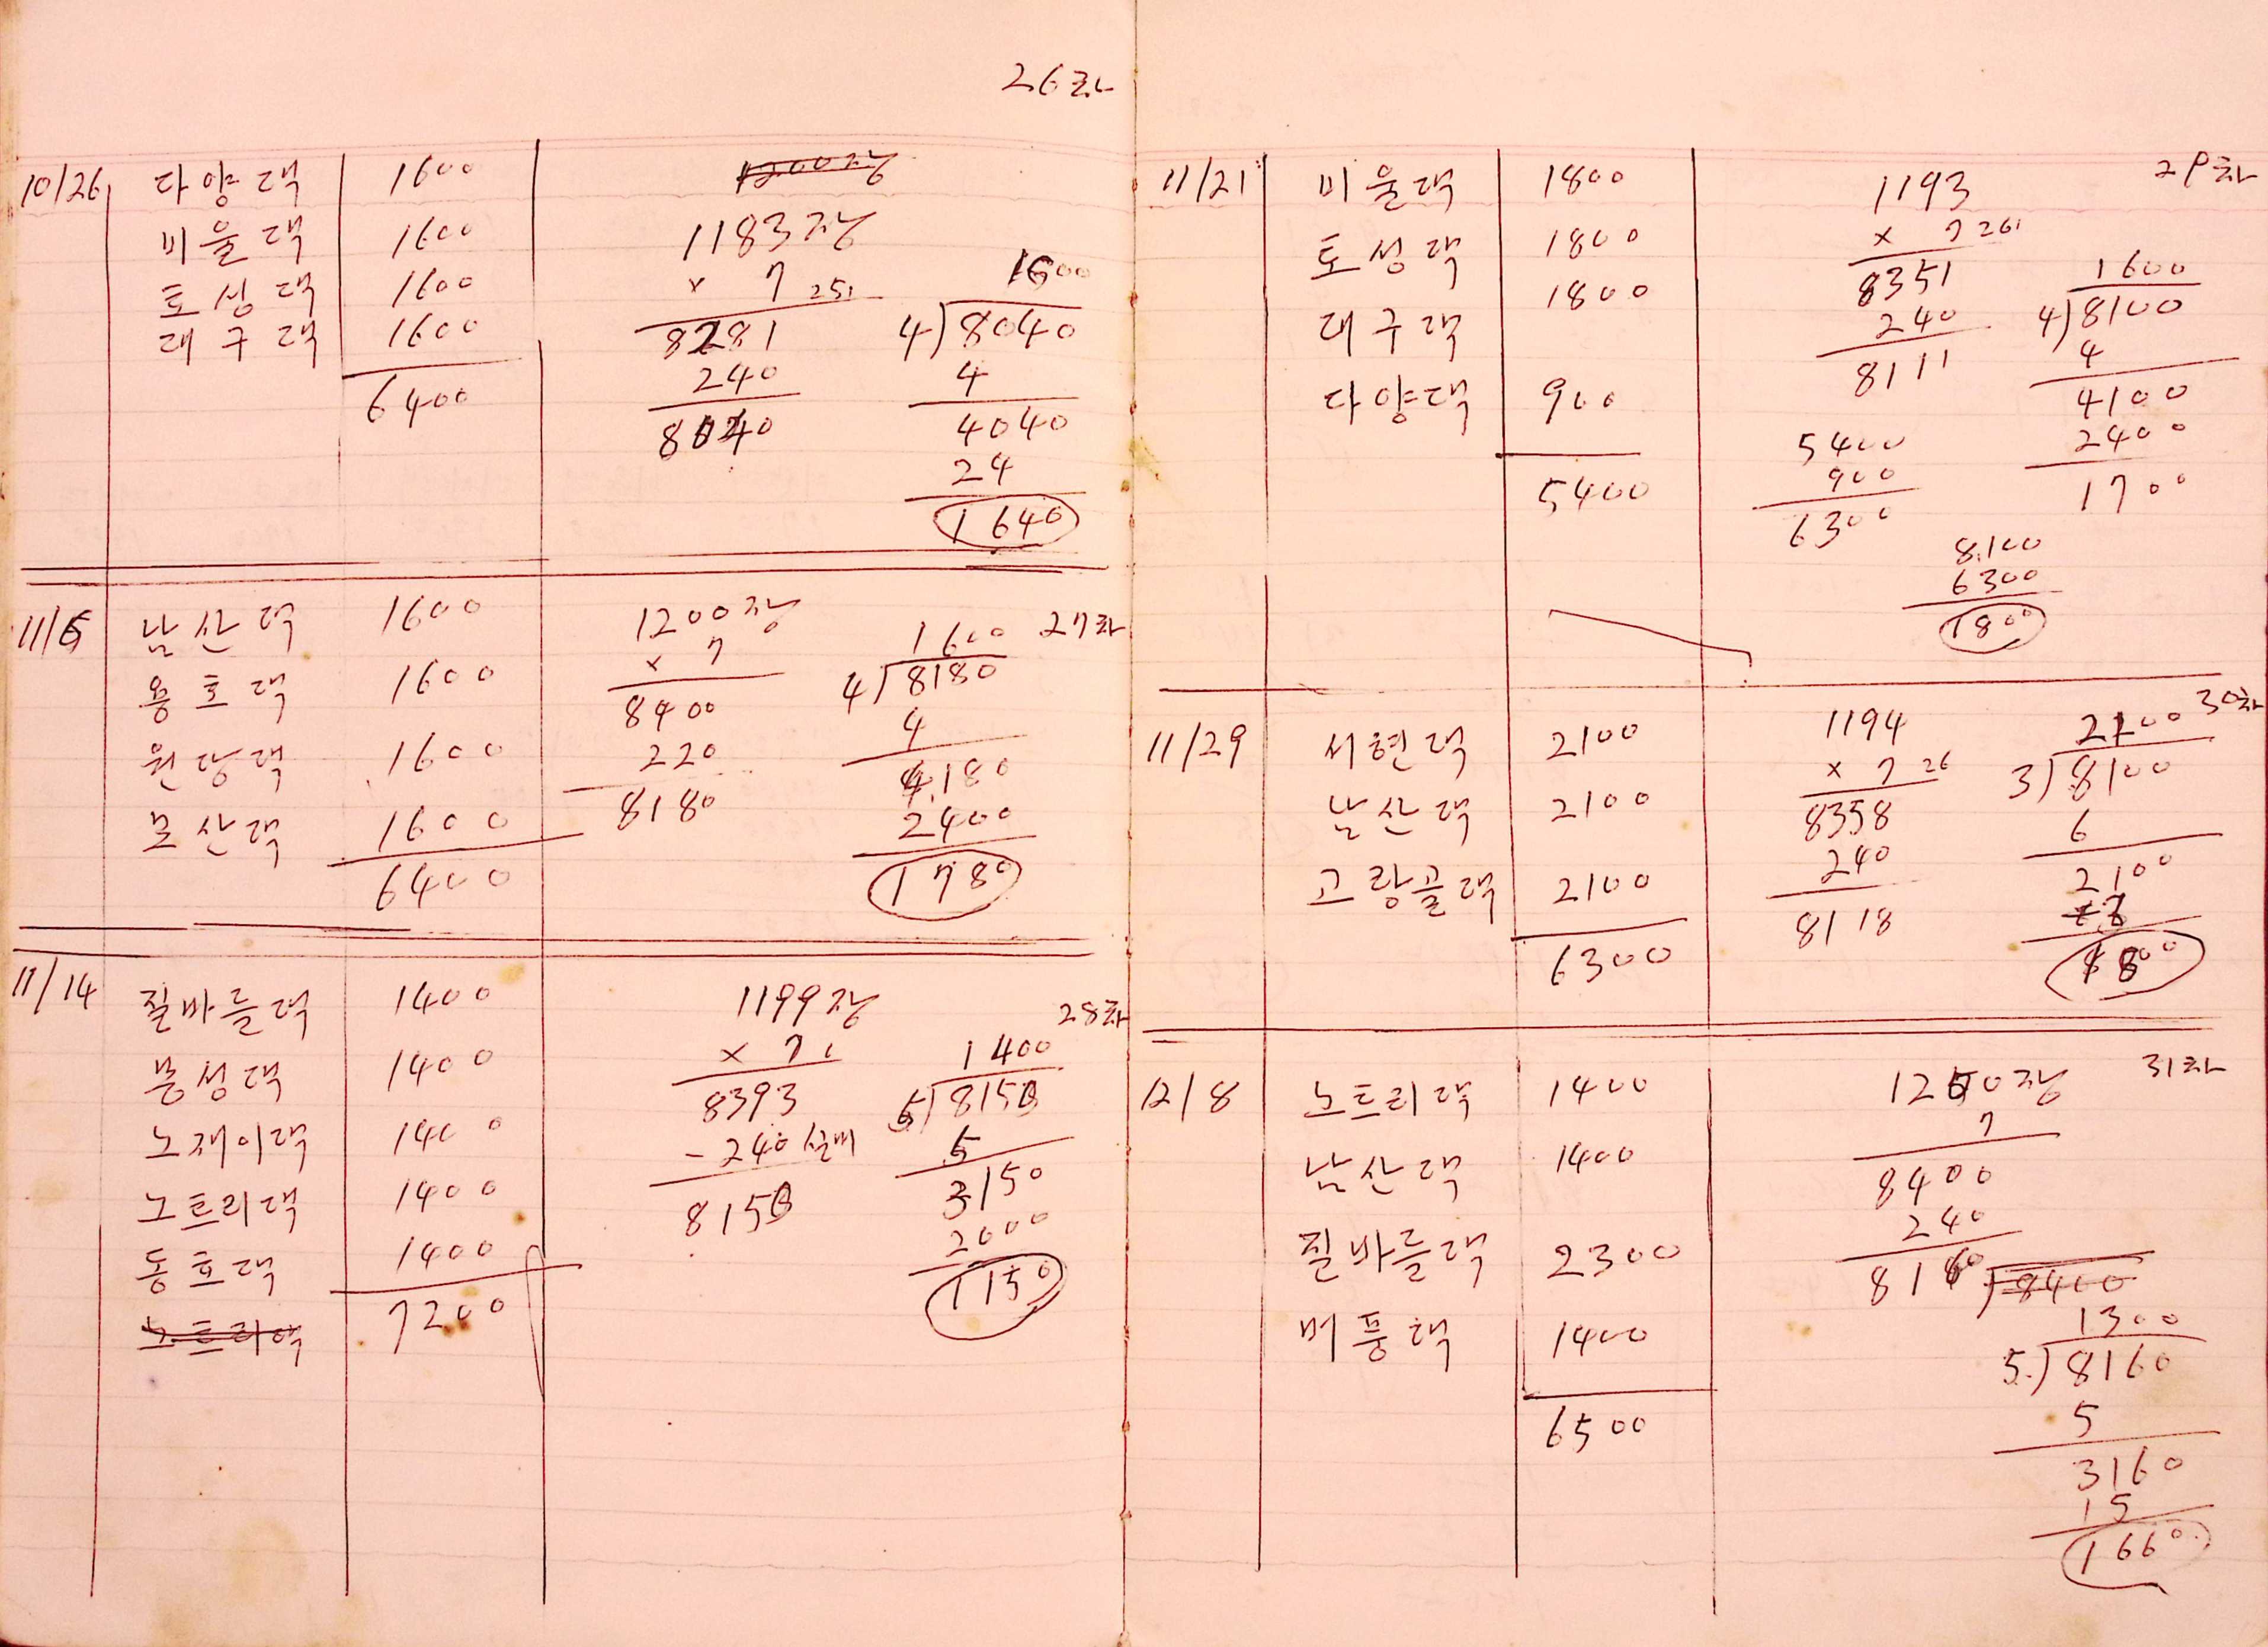 26차
10/26 다양댁 1600 1200장
비울댁 1600 1183장
토성댁 1600 × 7 251 1600
대구댁 1600 8281 4)8040
6400 240 4
8040 4040
24
1640
11/6 남산댁 1600 1200장 27차
× 7 1600
용호댁 1600 8400 4)8180
220 4
원당댁 1600 8180 4180
모산댁 1600 2400
6400 1780
11/14 질바들댁 1400 1199장 28차
× 7 1400
문성댁 1400 8393 5)8150
노재이댁 1400 -240 실비 5
노트리댁 1400 8150 3150
동호댁 1400 2000
노트리댁 7200 1150
11/21 비울댁 1800 1193 29차
토성댁 1800 × 7 261
대구댁 1800 8351 1600
240 4)8100
8111 4
다양댁 900 4100
5400 2400
5400 900 1700
6300
8.100
6300
1800
11/29 서현댁 2100 1194 2700 30차
× 7 26 3)8100
남산댁 2100 8358 6
고랑골댁 2100 240 2100
6300 8118
1800
12/8 노트리댁 1400 1200장 31차
남산댁 1400 7
8400
질바들댁 2300 240
8160 )8400
버풍댁 1400 1300
5.)8160
6500 5
3160
15
1660